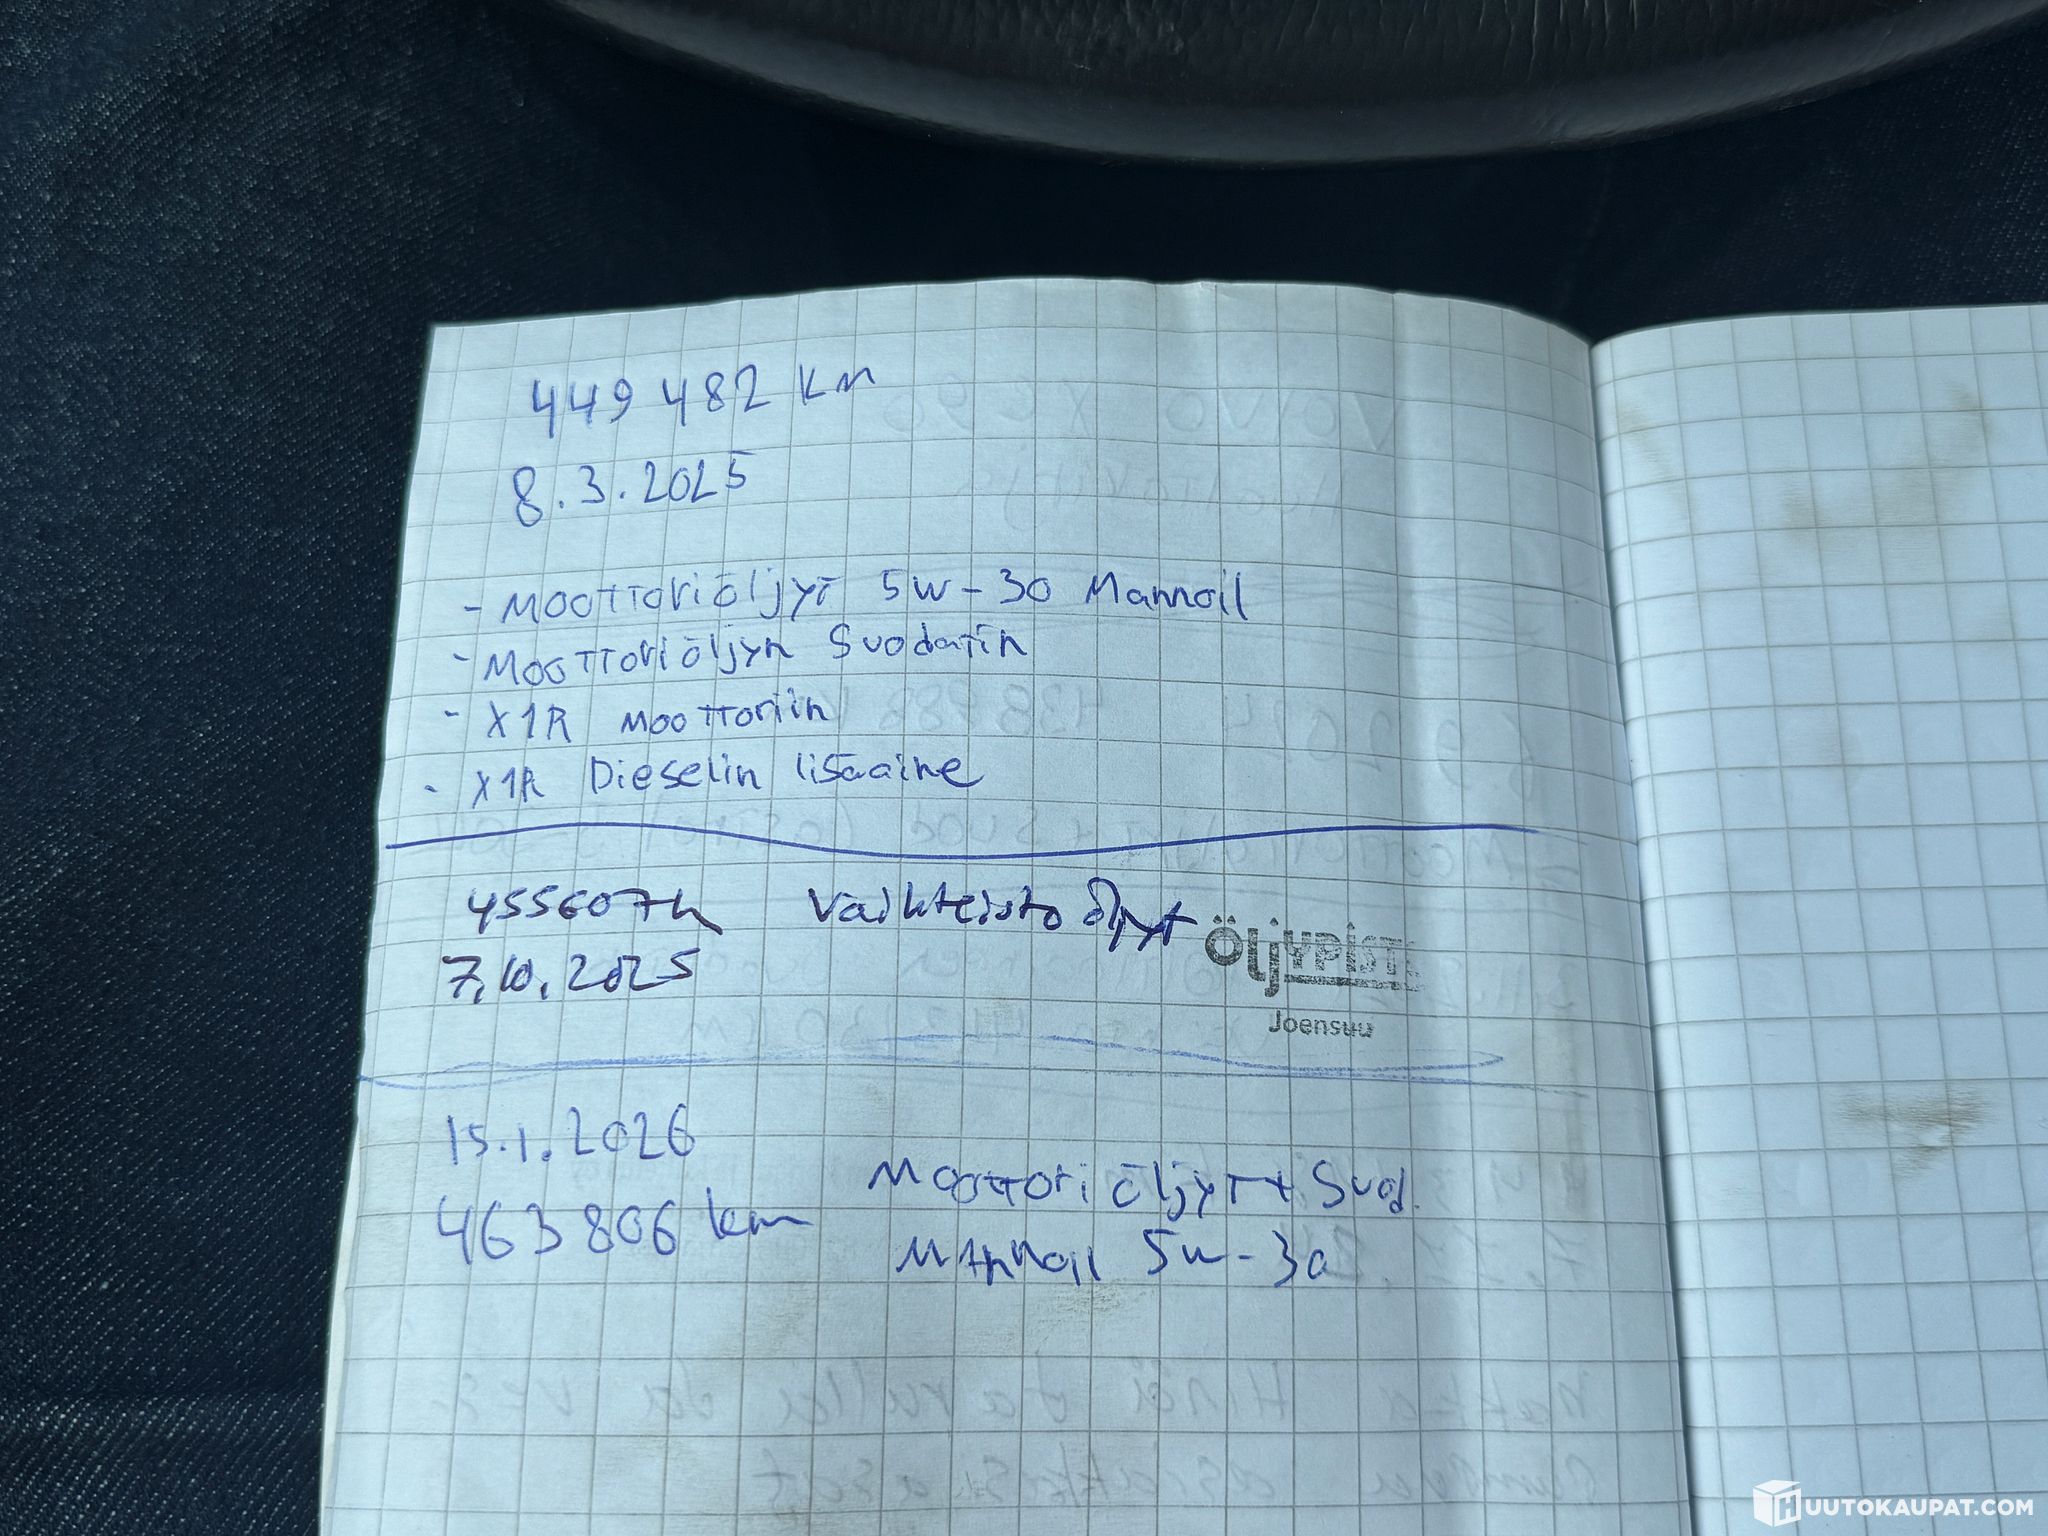 449 482 km
8.3.2025
- Moottoriöljyt 5W-30 Mannoil
- Moottoriöljyn Suodatin
- X1R moottoriin
- X1R Dieselin lisäaine
455607k Vaihteisto öljyt
7.10.2025
ÖljYPiST
Joensuu
15.1.2026
463 806 km
Moottori öljyt + Suod.
Mannoil 5w-30
HUUTOKAUPAT.COM